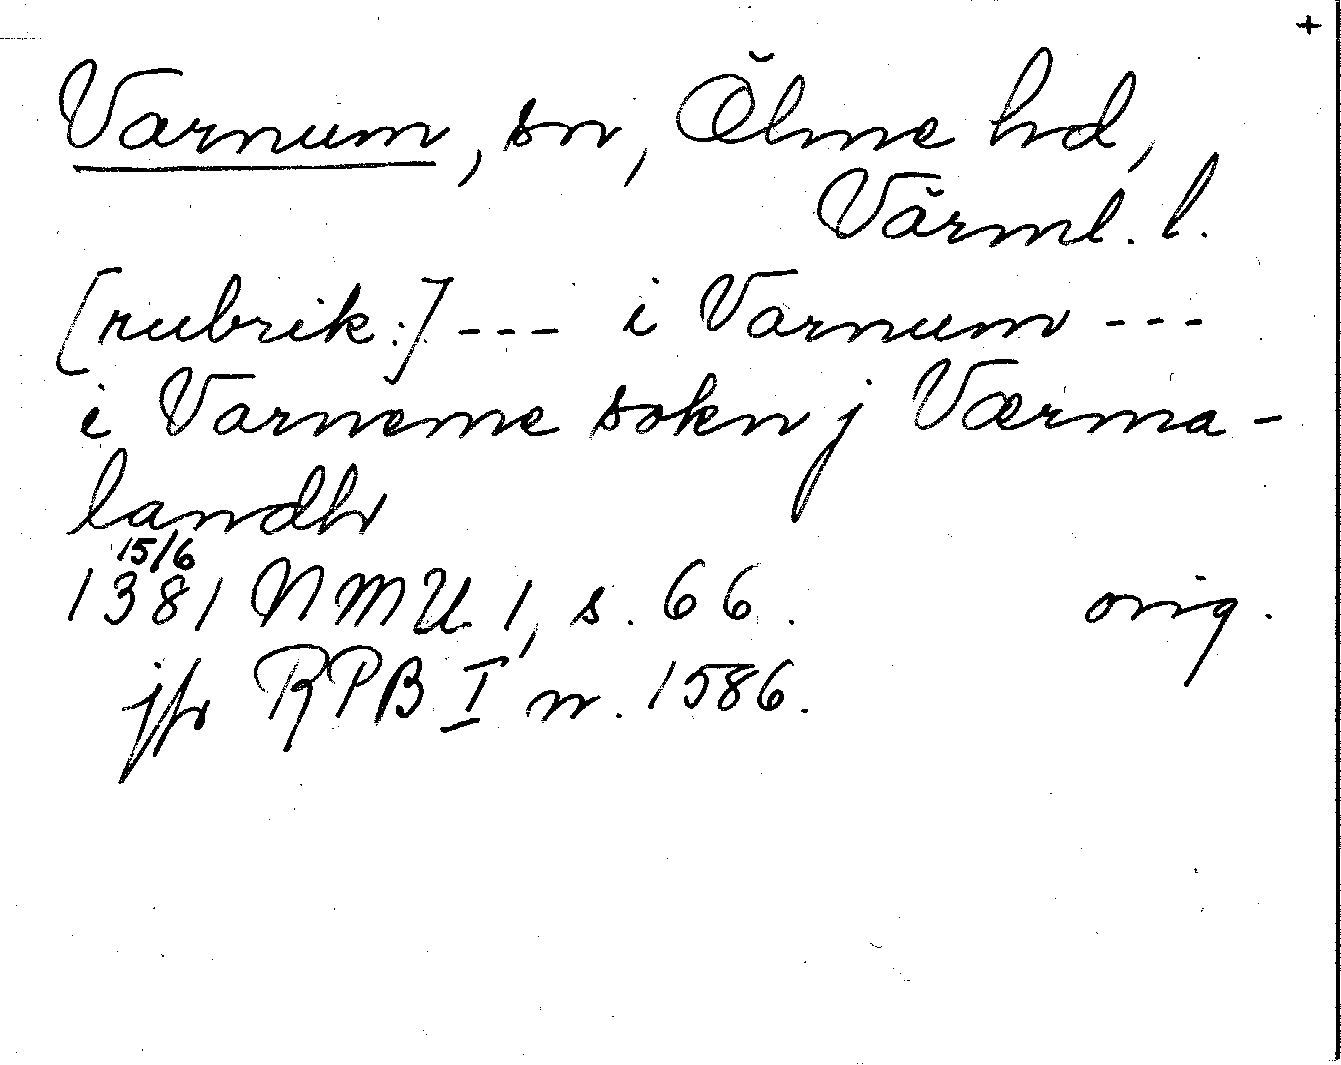 +
Varnum, sn, Ölme hd,
Värml. l.
[rubrik:] --- i Varnum ---
i Varneme sokn j Værma-
landh
15/6
1381 NMU 1, s. 66. orig.
jfr RPB I nr. 1586.